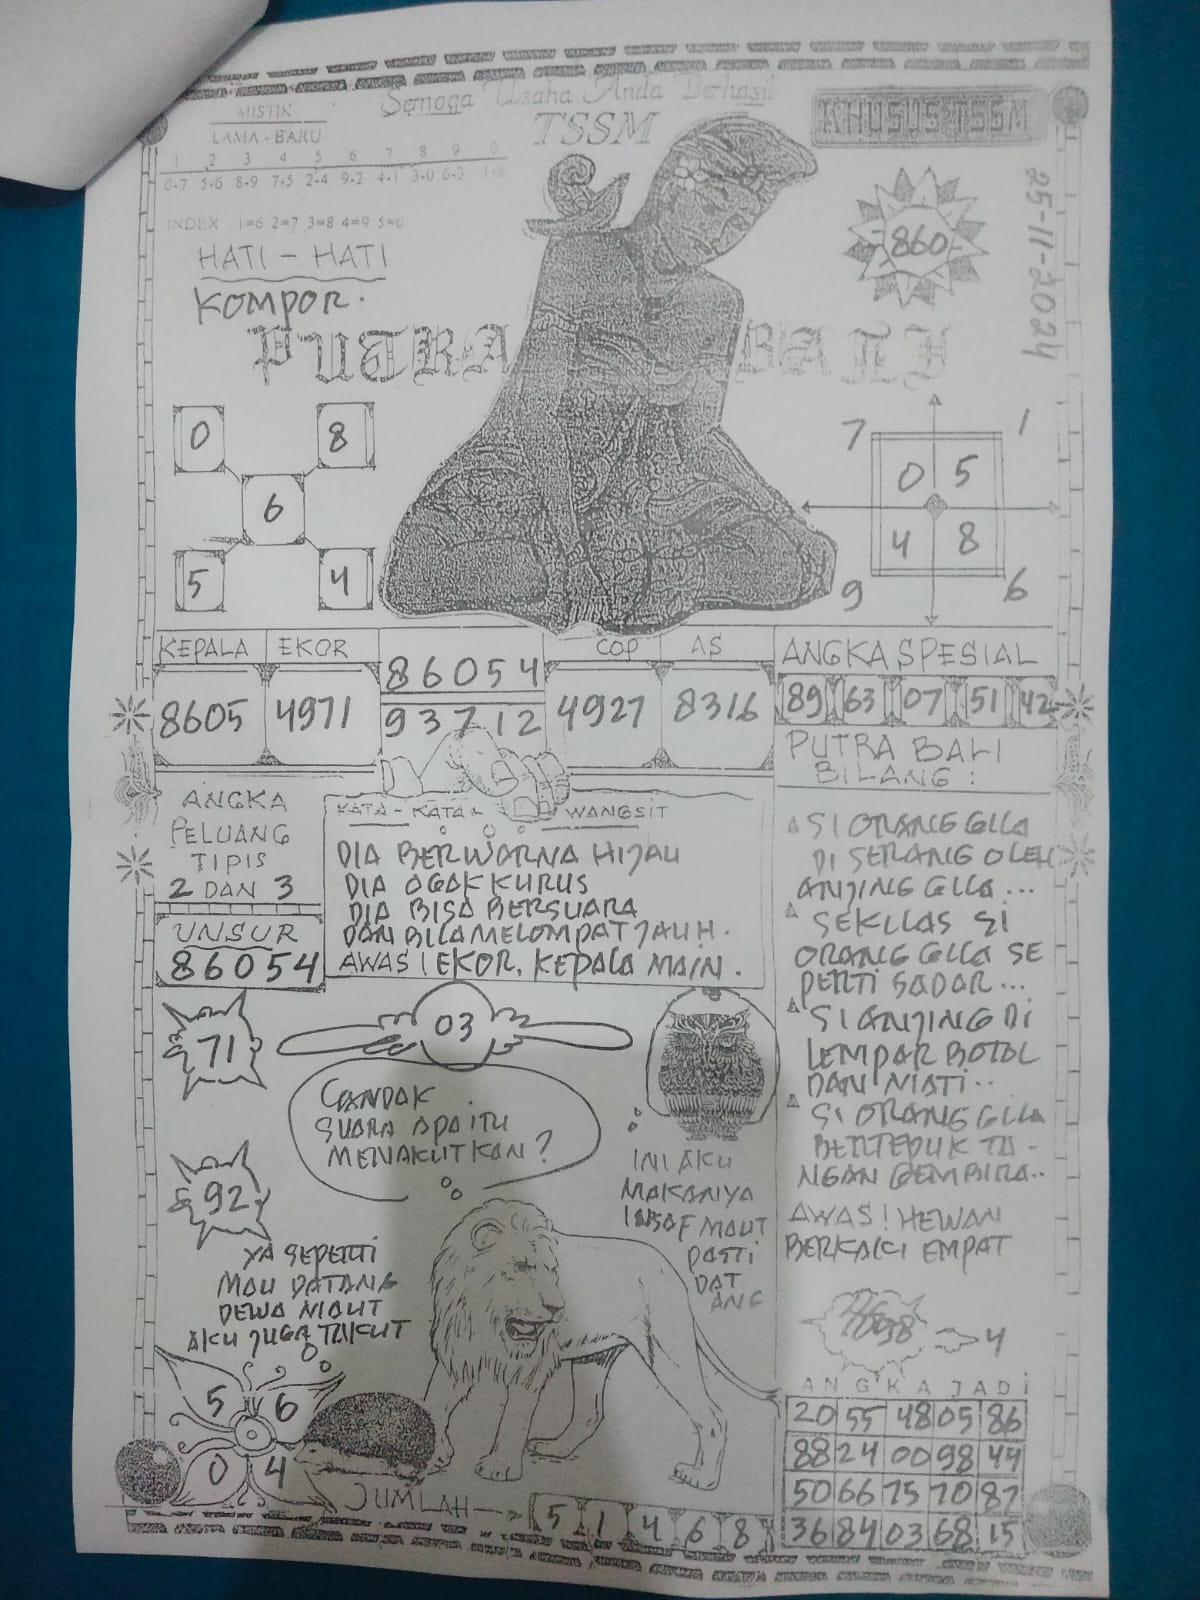 Semoga Usaha Anda Berhasil
TSSM
KHUSUS TSSM
MISTIK
LAMA - BARU
1 2 3 4 5 6 7 8 9 0
0-7 5-6 8-9 7-5 2-4 9-2 4-1 3-0 6-3 1-8
INDEX 1=6 2=7 3=8 4=9 5=0
HATI - HATI
KOMPOR.
860
25-11-2024
PUTRA BALI
0 8
6
5 4
7 1
0 5
4 8
9 6
KEPALA EKOR
8605 4971
86054
93712
COP AS
4927 8316
ANGKA SPESIAL
89 63 07 51 42
ANGKA
PELUANG
TIPIS
2 DAN 3
UNSUR
86054
KATA - KATA WANGSIT
DIA BERWARNA HIJAU
DIA AGAK KURUS
DIA BISA BERSUARA
DAN BILA MELOMPAT JAUH.
AWAS! EKOR, KEPALA MAIN.
PUTRA BALI
BILANG :
SI ORANG GILA
DI SERANG OLEH
ANJING GILA ...
SEKILAS SI
ORANG GILA SE
PERTI SADAR ...
SI ANJING DI
LEMPAR BOTOL
DAN MATI..
SI ORANG GILA
BERTEPUK TA -
NGAN GEMBIRA..
AWAS! HEWAN
BERKAKI EMPAT
71
03
92
GANDAK
SUARA APA ITU
MENAKUTKAN?
INI AKU
MAKANYA
INSAF MAUT
PASTI
DAT
ANG
YA SEPERTI
MAU DATANG
DEWA MAUT
AKU JUGA TAKUT
5 6
0 4
JUMLAH
5 1 4 6 8
4
ANGKA JADI
20 55 48 05 86
88 24 00 98 44
50 66 75 70 87
36 84 03 68 15